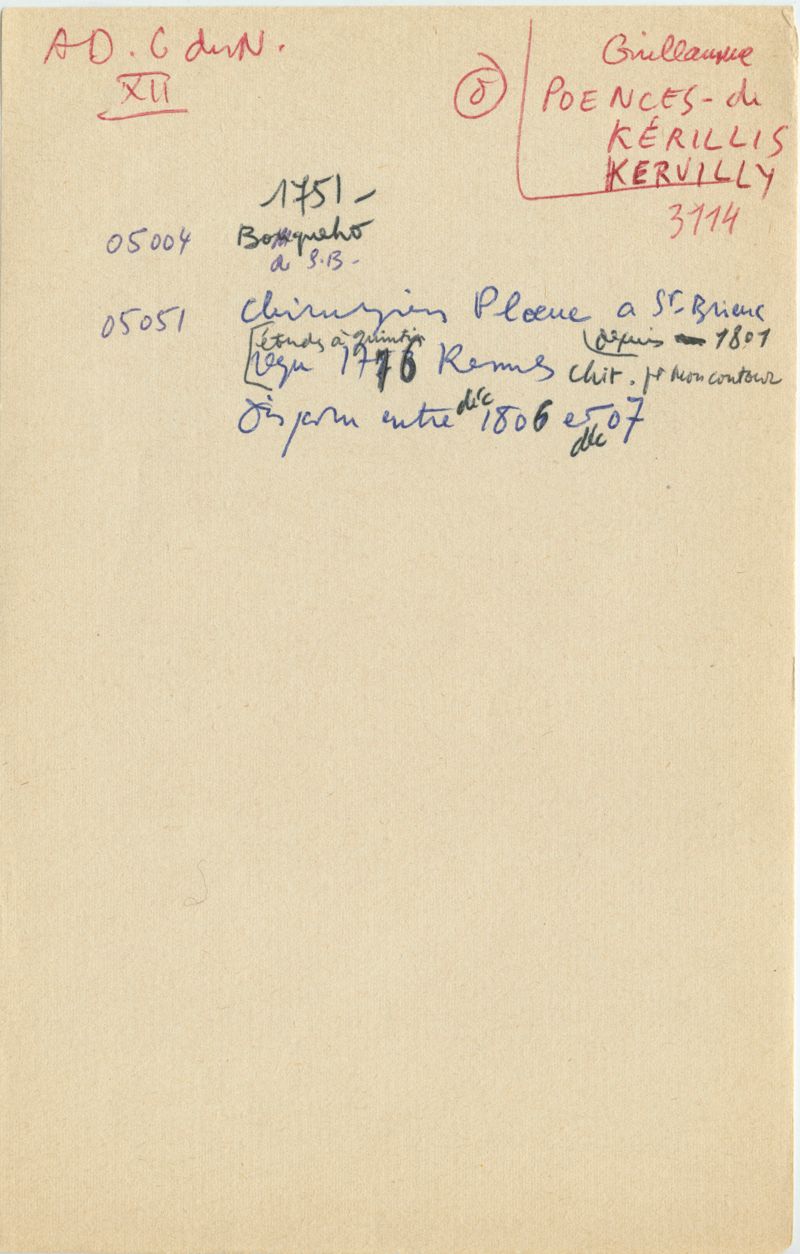 AD. C du N.
XII
Guillaume
POENCES - de
KÉRILLIS
KERVILLY
3114
1751 -
05004 Bosqueho
à S.B -
05051 chirurgien Place à St-Brieuc
études à Quintin
depuis 1801
reçu 1776 Rennes Chir. pr Moncontour
Disparu entre déc 1806 et déc 07